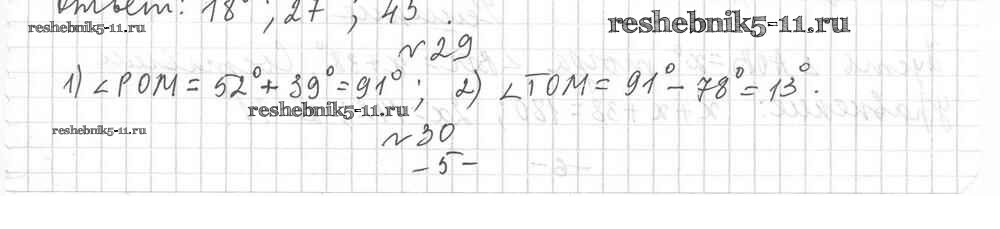 Ответ: 18°; 27°; 45°.
reshebnik5-11.ru
reshebnik5-11.ru
№29
1) ∠POM = 52° + 39° = 91°; 2) ∠TOM = 91° - 78° = 13°.
reshebnik5-11.ru
reshebnik5-11.ru
№30
-5-